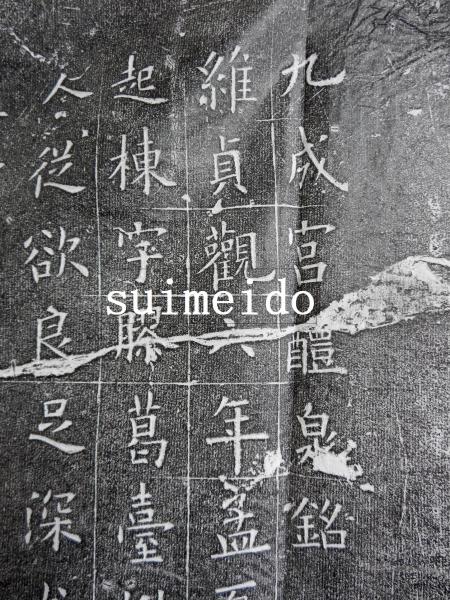 九成宮醴泉銘
維貞觀六年孟
起棟宇膠葛臺
人從欲良足深
suimeido